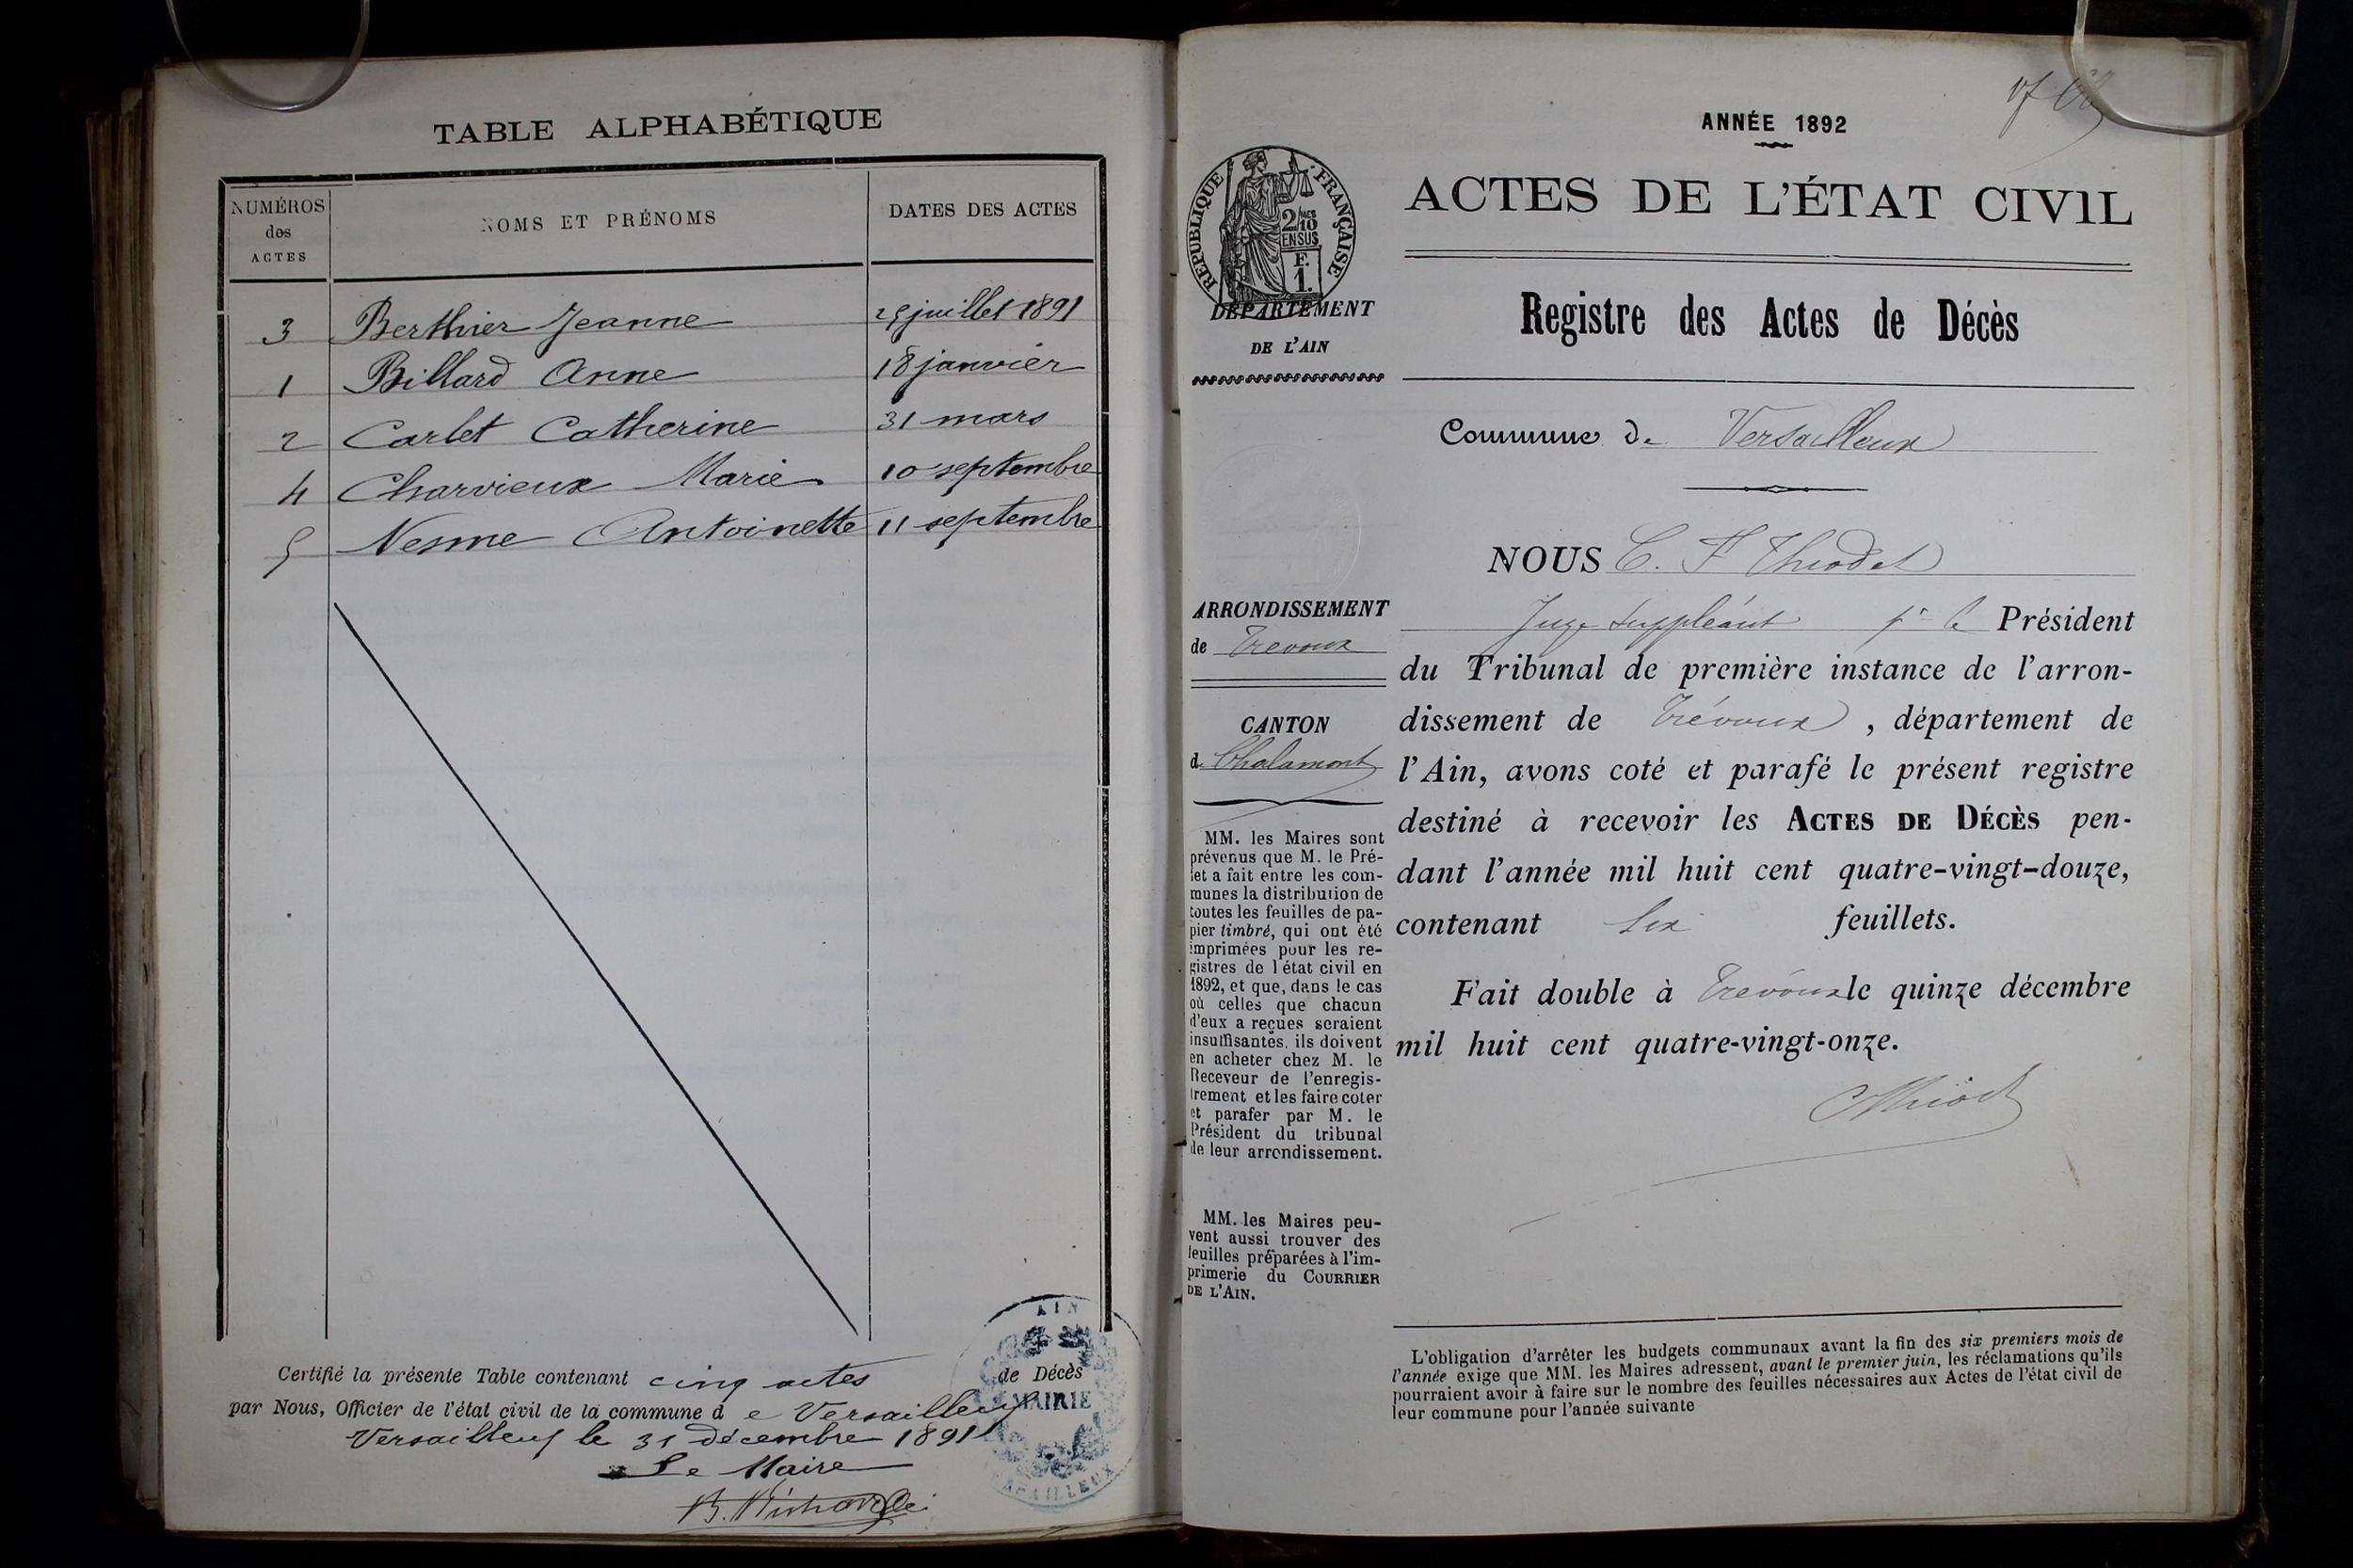 TABLE ALPHABÉTIQUE
NUMÉROS
des
ACTES
NOMS ET PRÉNOMS
DATES DES ACTES
3 Berthier Jeanne 25 juillet 1891
1 Billard Anne 18 janvier
2 Carlet Catherine 31 mars
4 Charvieux Marie 10 septembre
5 Nesme Antoinette 11 septembre
Certifié la présente Table contenant cinq actes de Décès
par Nous, Officier de l'état civil de la commune de Versailleux
Versailleux le 31 décembre 1891
Le Maire
AIN
MAIRIE
VERSAILLEUX
ANNÉE 1892
RÉPUBLIQUE FRANÇAISE
2/10
EN SUS
F.
1.
DÉPARTEMENT
DE L'AIN
ACTES DE L'ÉTAT CIVIL
Registre des Actes de Décès
Commune de Versailleux
ARRONDISSEMENT
de Trevoux
CANTON
de Chalamont
MM. les Maires sont
prévenus que M. le Pré-
fet a fait entre les com-
munes la distribution de
toutes les feuilles de pa-
pier timbré, qui ont été
imprimées pour les re-
gistres de l'état civil en
1892, et que, dans le cas
où celles que chacun
d'eux a reçues seraient
insuffisantes, ils doivent
en acheter chez M. le
Receveur de l'enregis-
trement et les faire coter
et parafer par M. le
Président du tribunal
de leur arrondissement.
MM. les Maires peu-
vent aussi trouver des
feuilles préparées à l'im-
primerie du COURRIER
DE L'AIN.
NOUS C. F. Thiodet
Juge suppléant pr le Président
du Tribunal de première instance de l'arron-
dissement de Trévoux, département de
l'Ain, avons coté et parafé le présent registre
destiné à recevoir les ACTES DE DÉCÈS pen-
dant l'année mil huit cent quatre-vingt-douze,
contenant six feuillets.
Fait double à Trevoux le quinze décembre
mil huit cent quatre-vingt-onze.
L'obligation d'arrêter les budgets communaux avant la fin des six premiers mois de
l'année exige que MM. les Maires adressent, avant le premier juin, les réclamations qu'ils
pourraient avoir à faire sur le nombre des feuilles nécessaires aux Actes de l'état civil de
leur commune pour l'année suivante